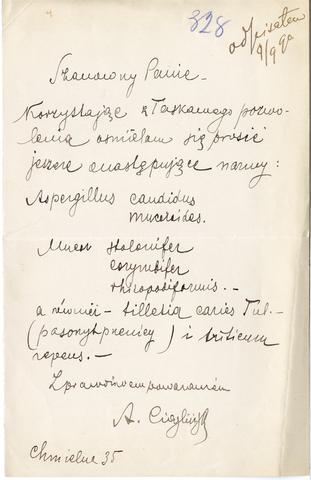 328
odpisałem
9/9 90
Szanowny Panie -
Korzystając z Łaskawego pozwo-
lenia ośmielam się prosić
jeszcze o następujące nazwy:
Aspergillus candidus
mucoroides.
Mucor stolonifer
corymbifer
rhizopodiformis. -
a również - tilletia caries Tul. -
(pasorzyt pszenicy) i triticum
repens. -
Z prawdziwem poważaniem
A.
Chmielna 35